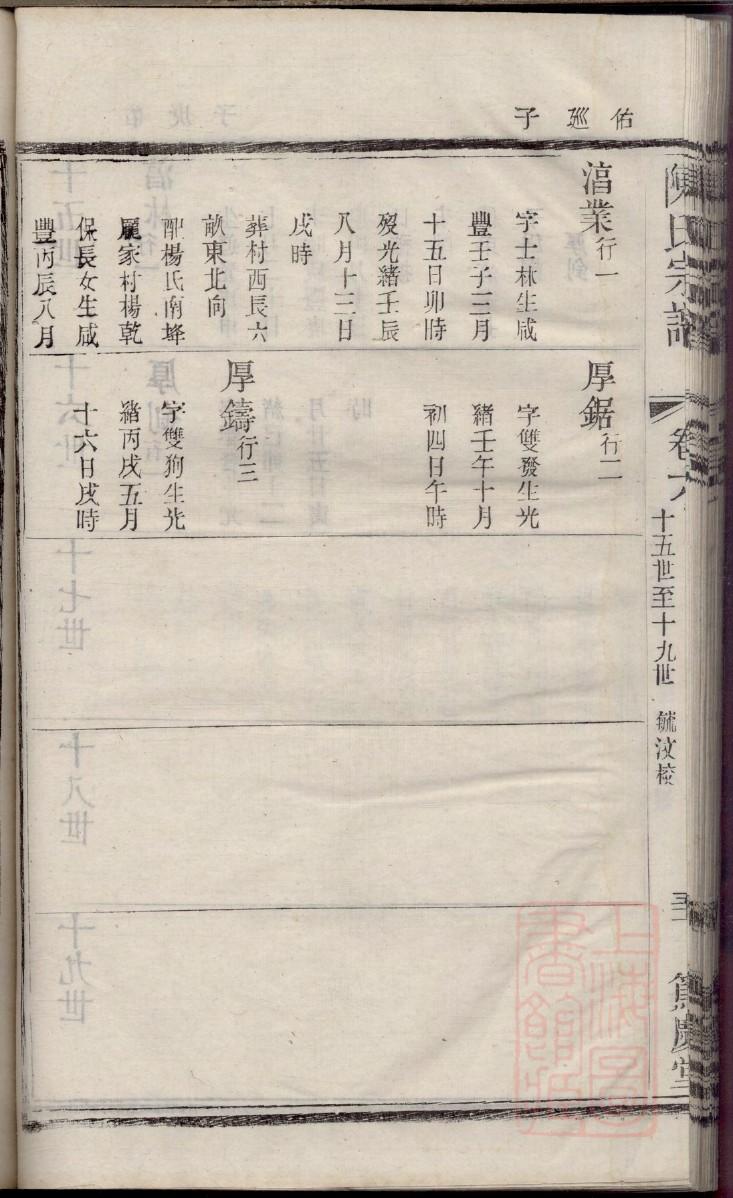 佑廵子
湻業行一
字士林生咸
豐壬子三月
十五日卯時
歿光緒壬辰
八月十三日
戌時
葬村西長六
畝東北向
配楊氏南埄
家村楊乾
保長女生咸
豐丙辰八月
厚鋸行二
字雙發生光
緒壬午十月
初四日午時
厚鑄行三
字雙狗生光
緒丙戌五月
十六日戌時
陳氏宗譜
卷六
十五世至十九世
毓汶校
篤慶堂
上海圖書館藏